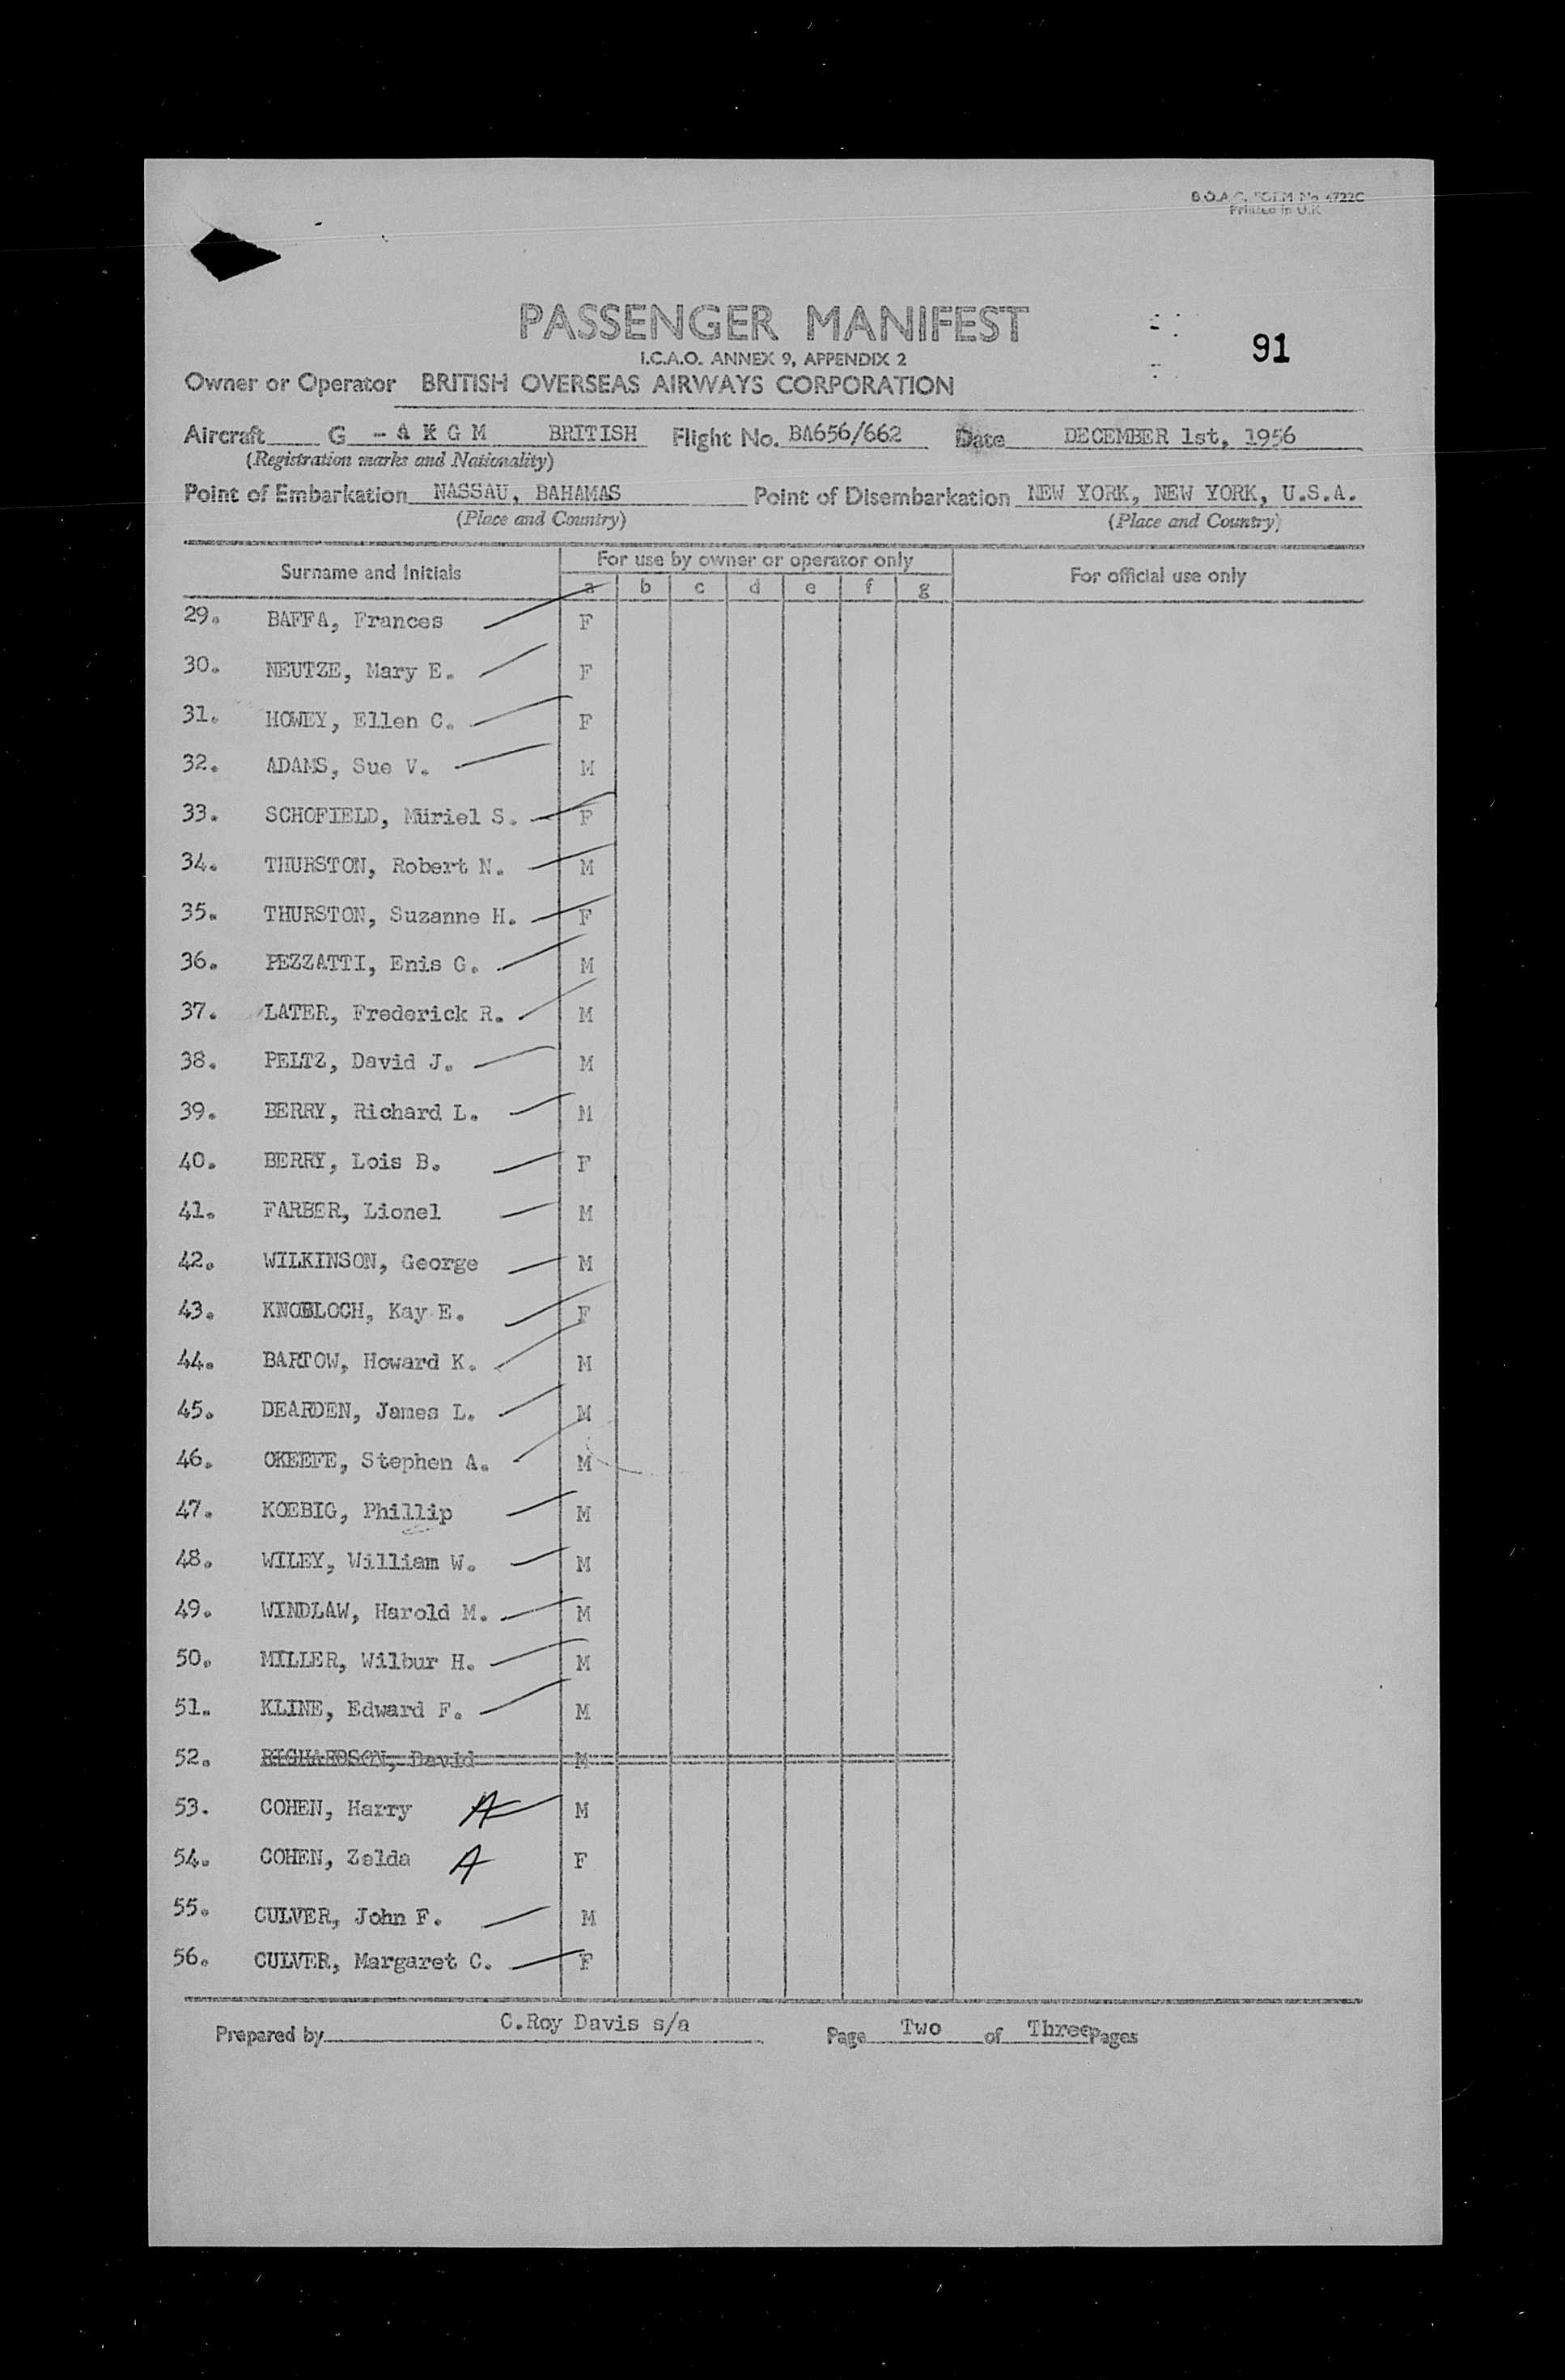 B.O.A.C. FORM No 4722C
Printed in U.K.
PASSENGER MANIFEST
91
I.C.A.O. ANNEX 9, APPENDIX 2
Owner or Operator BRITISH OVERSEAS AIRWAYS CORPORATION
Aircraft G - A K G M BRITISH Flight No. BA656/662 Date DECEMBER 1st, 1956
(Registration marks and Nationality)
Point of Embarkation NASSAU, BAHAMAS Point of Disembarkation NEW YORK, NEW YORK, U.S.A.
(Place and Country) (Place and Country)
Surname and Initials For use by owner or operator only For official use only
a b c d e f g
29. BAFFA, Frances F
30. NEUTZE, Mary E. F
31. HOWEY, Ellen C. F
32. ADAMS, Sue V. M
33. SCHOFIELD, Muriel S. F
34. THURSTON, Robert N. M
35. THURSTON, Suzanne H. F
36. PEZZATTI, Enis G. M
37. LATER, Frederick R. M
38. PELTZ, David J. M
39. BERRY, Richard L. M
40. BERRY, Lois B. F
41. FARBER, Lionel M
42. WILKINSON, George M
43. KNOBLOCH, Kay E. F
44. BARTOW, Howard K. M
45. DEARDEN, James L. M
46. OKEEFE, Stephen A. M
47. KOEBIG, Phillip M
48. WILEY, William W. M
49. WINDLAW, Harold M. M
50. MILLER, Wilbur H. M
51. KLINE, Edward F. M
52. RICHARDSON, David M
53. COHEN, Harry A M
54. COHEN, Zelda A F
55. CULVER, John F. M
56. CULVER, Margaret C. F
Prepared by C.Roy Davis s/a Page Two of Three Pages